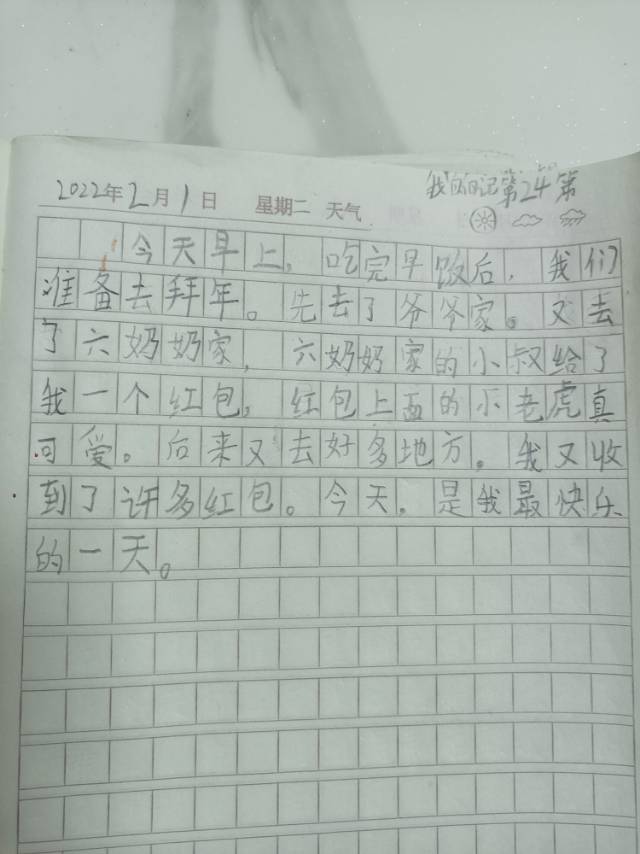 我的日记第24第
2022年2月1日 星期二 天气
今天早上，吃完早饭后，我们
准备去拜年。先去了爷爷家。又去
了六奶奶家，六奶奶家的小叔给了
我一个红包，红包上面的小老虎真
可爱。后来又去好多地方。我又收
到了许多红包。今天，是我最快乐
的一天。